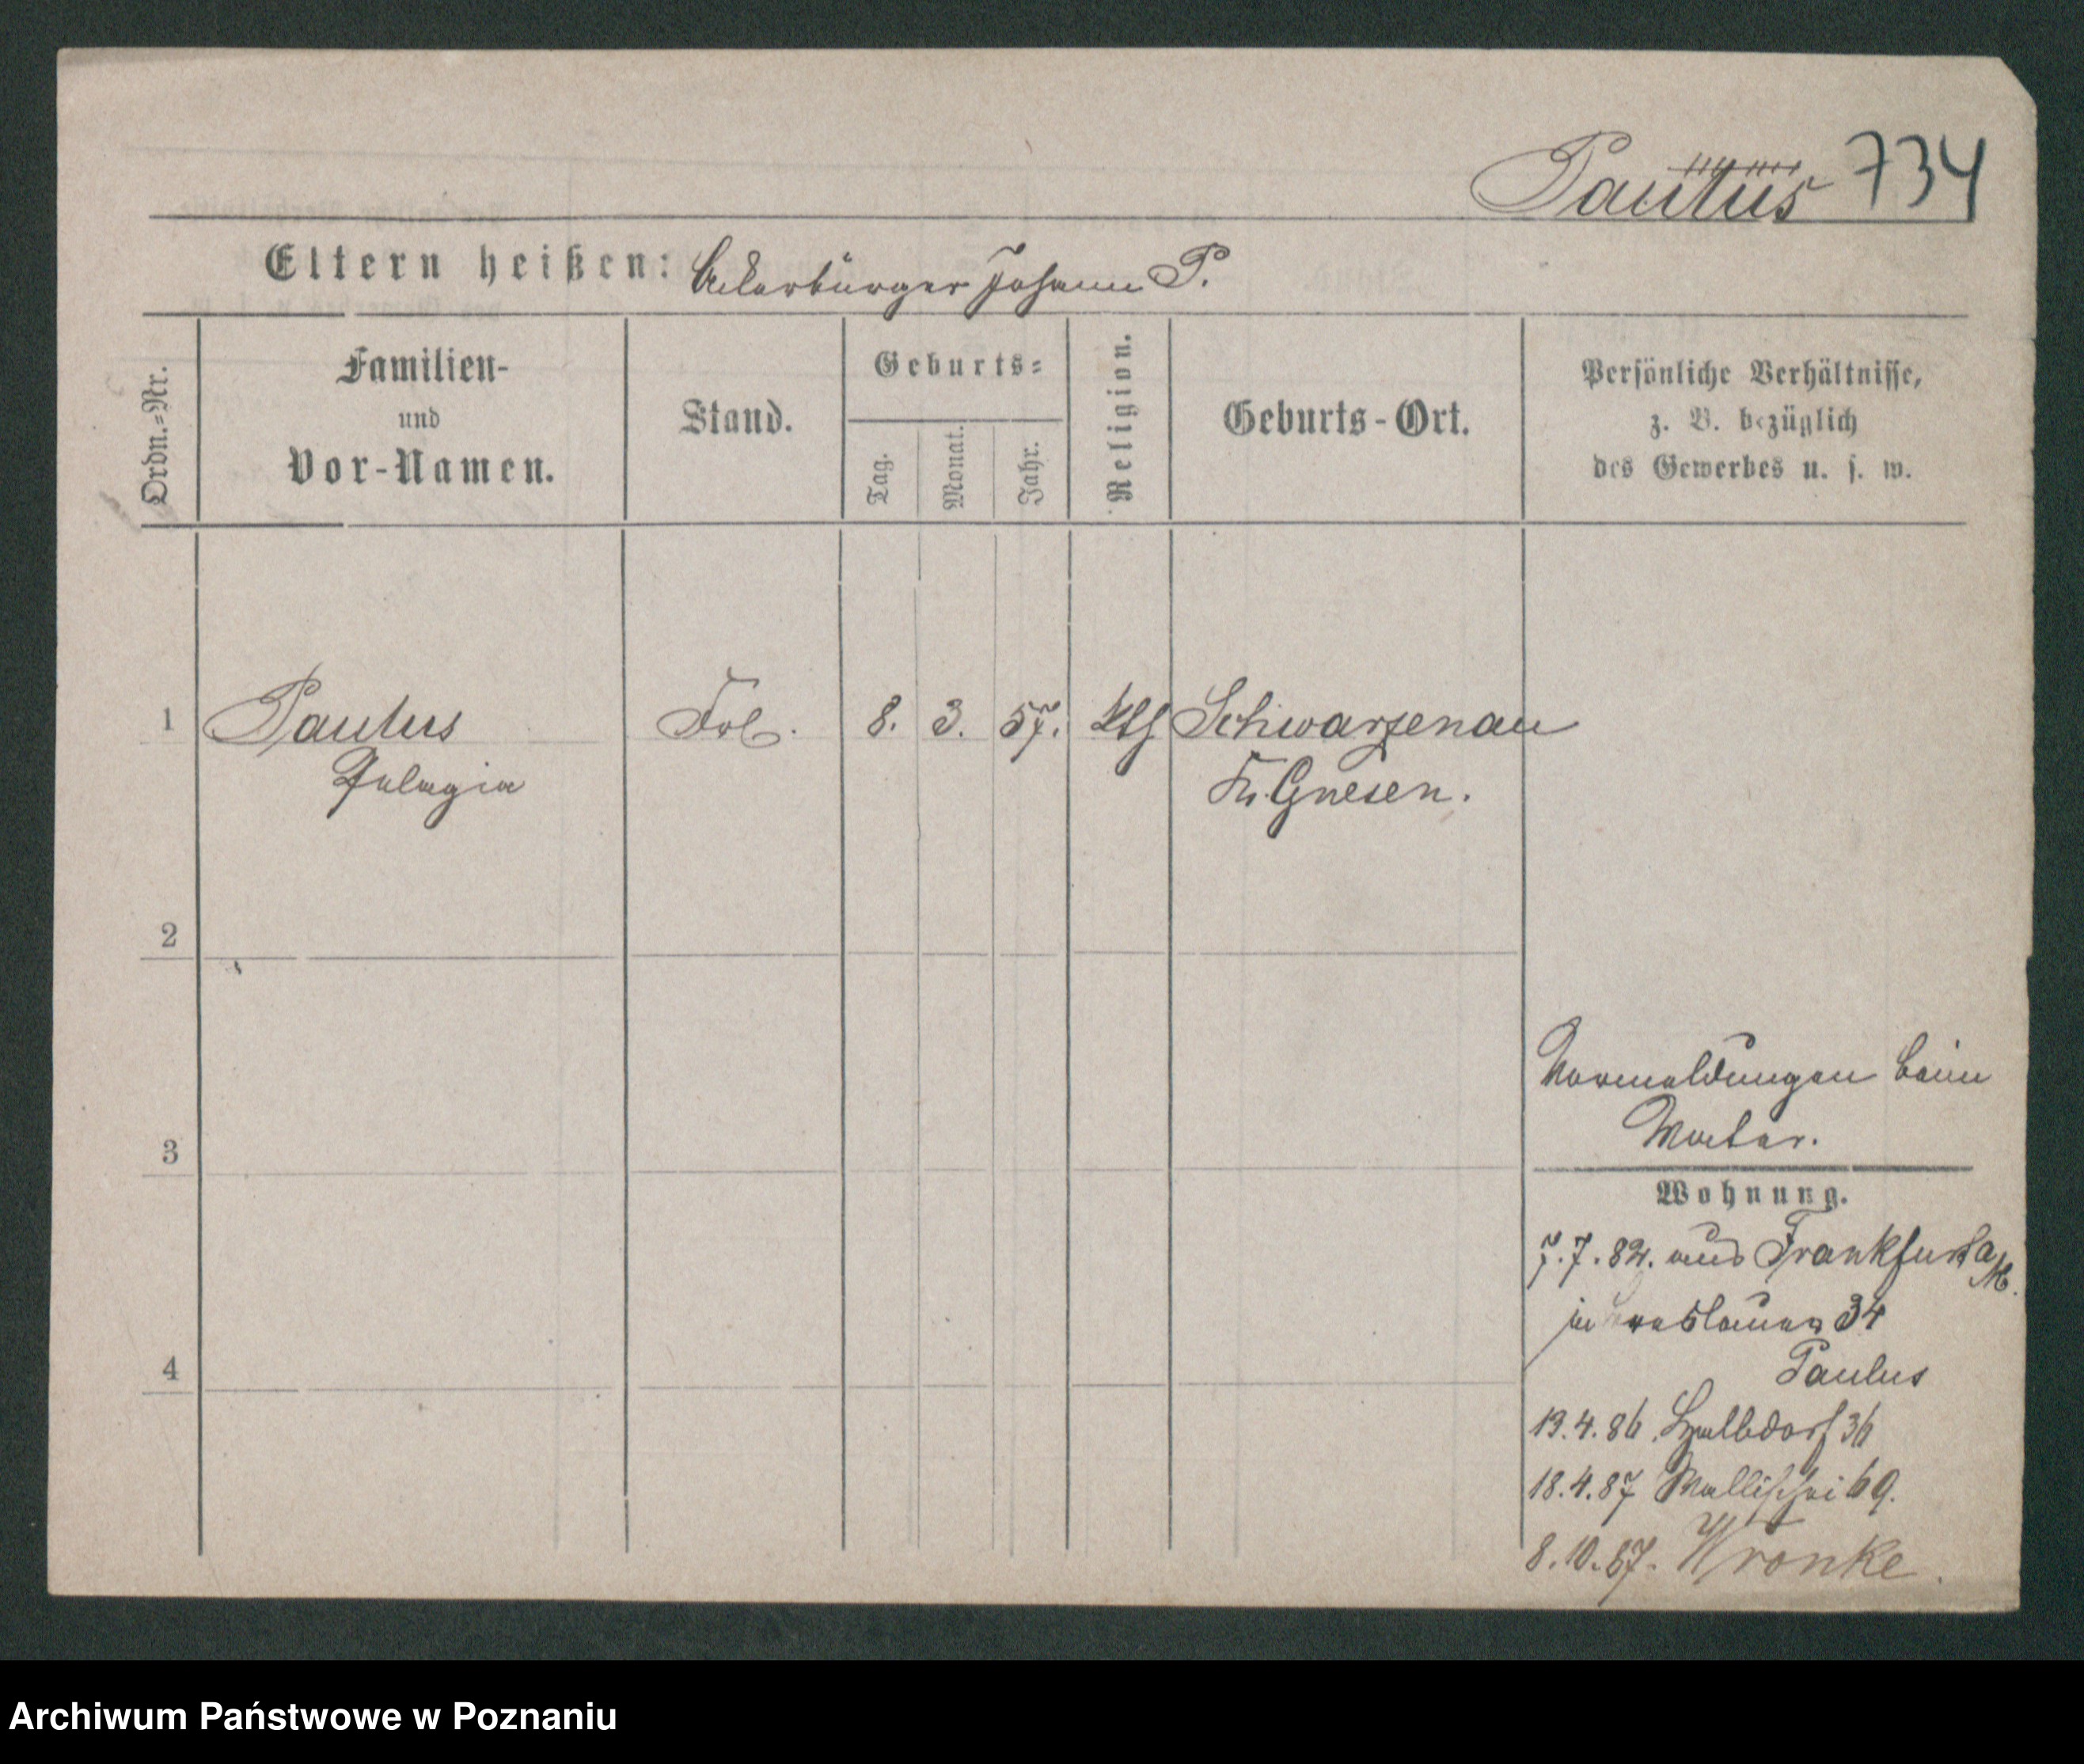 Paulus 734
Eltern heißen: Ackerbürger Johann P.
Ordn.-Nr.
Familien-
und
Vor-Namen.
Stand.
Geburts-
Tag.
Monat.
Jahr.
Religion.
Geburts-Ort.
Persönliche Verhältnisse,
z. B. bezüglich
des Gewerbes u. s. w.
1 Paulus Frl. 8. 3. 57. kth Schwarzenau
Pelagia Kr. Gnesen.
2
3
4
Vormeldungen beim
Vater.
Wohnung.
7.7.82. aus Frankfurt a/M.
in 34
Paulus
13.4.86. Halbdorf 36
18.4.87 Wallischei 69.
8.10.87. Wronke.
Archiwum Państwowe w Poznaniu